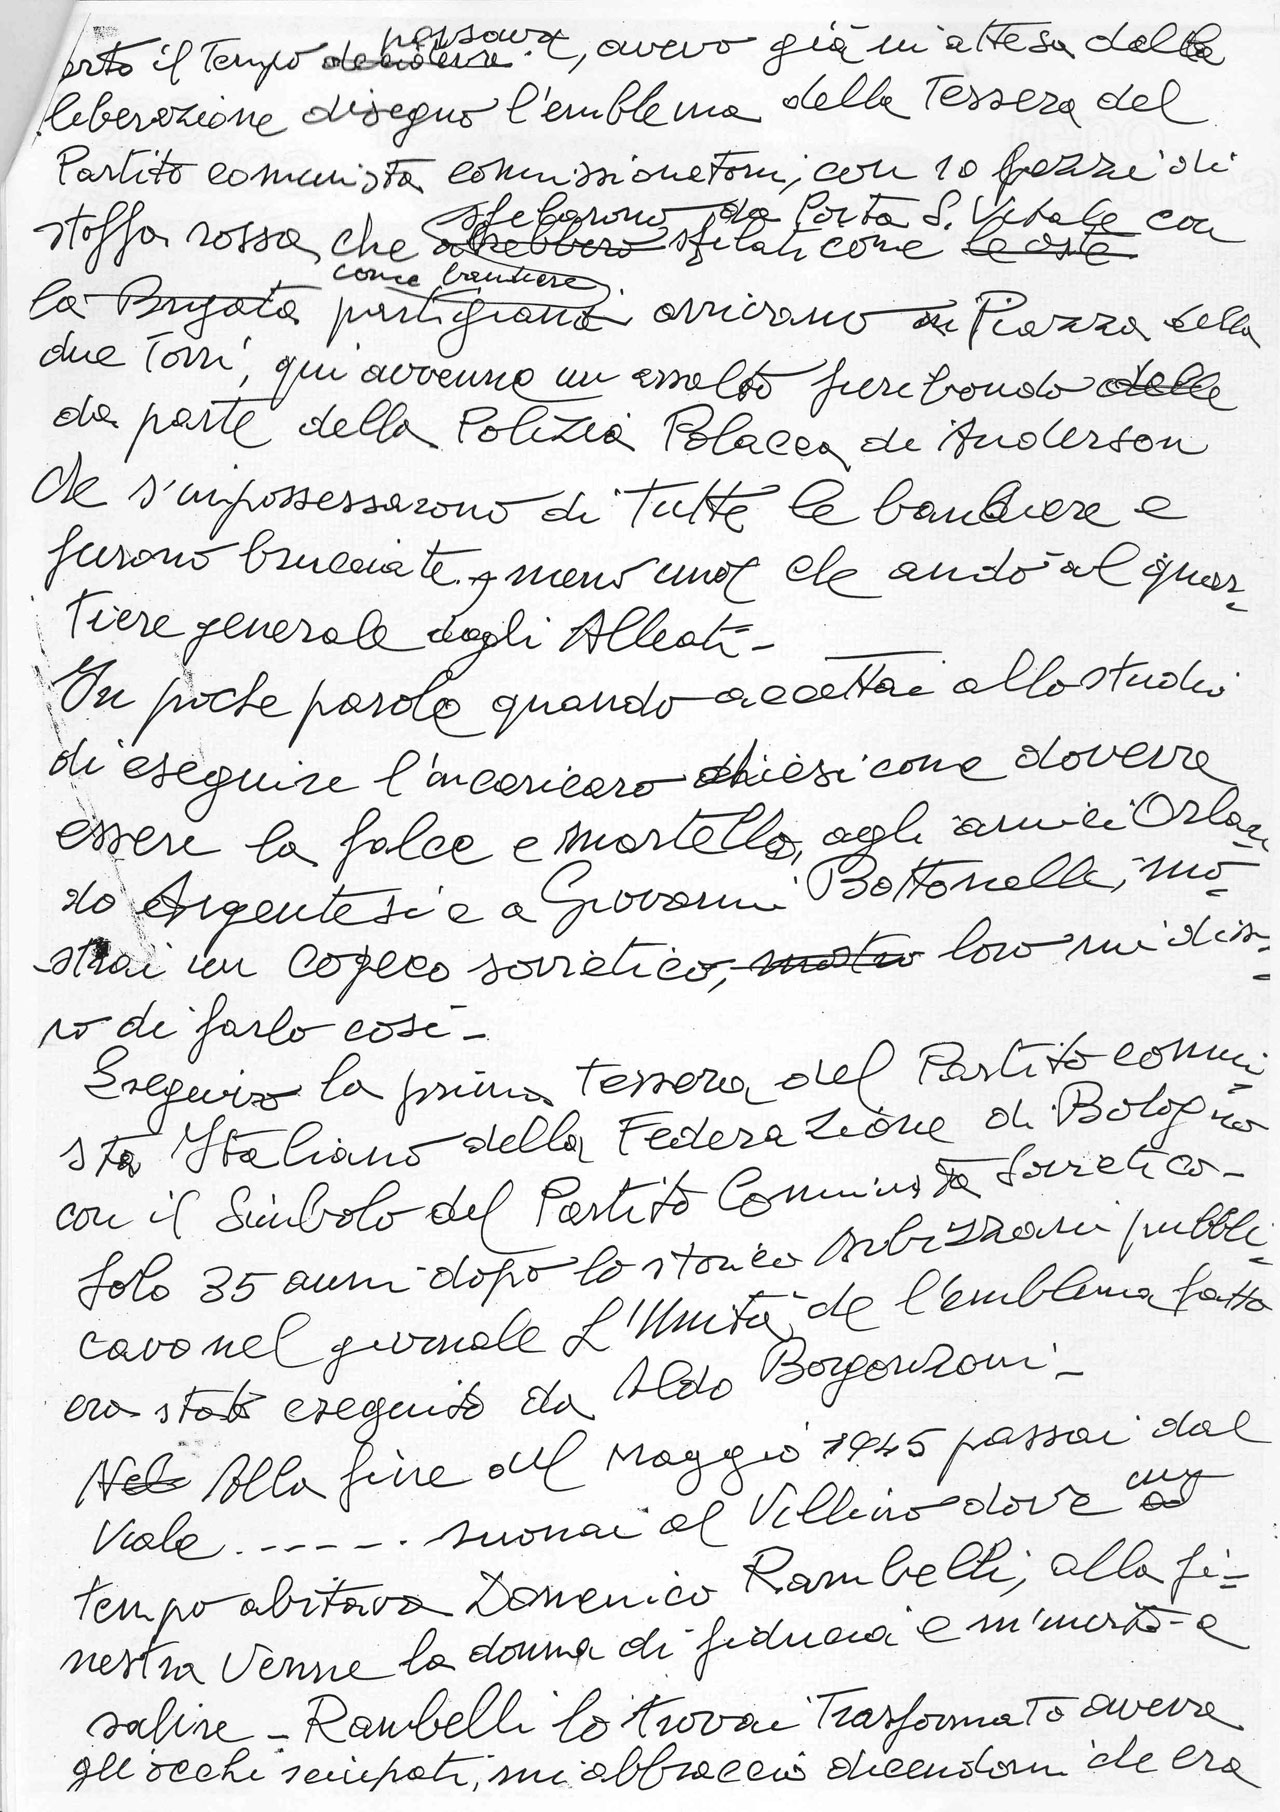 il Tempo passava, avevo già in attesa della
liberazione disegno l'emblema della Tessera del
Partito comunista commissionatomi, con 10 pezzi di
stoffa rossa, che sfilarono da Porta S. Vitale con
sfilati come le aste
come bandiere
la Brigata partigiana arrivano in Piazza della
due Torri, qui avvenne un assalto furibondo delle
da parte della Polizia Polacca di Anderson
che s'impossessarono di Tutte le bandiere e
furono bruciate, meno una che andò al quar-
tiere generale dagli Alleati-
In poche parole quando accettai allo studio
di eseguire l'incaricaro chiesi come doverra
essere la falce e martello, agli amici Orlan
do Argentesi e a Giovanni Bottonelli, mo-
strai un copeco sovietico, mostro loro mi disse-
ro di farlo così-
Eseguiro la prima Tessera del Partito comuni-
sta Italiano della Federazione di Bologna
con il Simbolo del Partito Comunista Sovietico-
Solo 35 anni dopo lo storico Arbizzani pubbli-
cava nel giornale L'Unità, che l'emblema fatto
era stato eseguito da Aldo Borgonzoni-
Nel Alla fine del Maggio 1945 passai dal
Viale.------. suonai al Villino dove un
tempo abitava Domenico Rambelli, alla fi-
nestra venne la donna di fiducia e m'invitò a
salire - Rambelli lo trovai Trasformato averra
gli occhi sciupati, mi abbracciò dicendomi che era